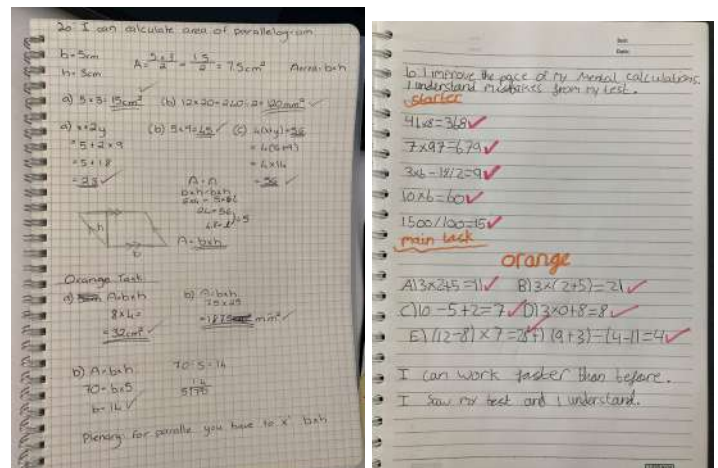 20 I can calculate area of parallelogram
b=5cm
h=3cm
A=5×3/2=15/2=7.5cm² Area=b×h
a) 5×3=15cm² (b) 12×20=240÷2=120mm²
a) x+2y (b) 5×9=45 (c) 4(x+y)=56
=5+2×9 =4(5+9)
=5+18 =4×14
=23 =56
b×h=b×h
h
b
A=b×h
Orange Task
a) A=b×h b) A=b×h
8×4= 75×25
=32cm² =1875 mm²
b) A=b×h 70÷5=14
70=b×5
b=14
Plenary: for paralle you have to x' b×h
Date:
lo. I improve the pace of my mental calculations.
I understand mistakes from my test.
starter
7×97=679
3×6-18/2=9
10×6=60
1500/100=15
main task
orange
A) 3×2+5=11 B) 3×(2+5)=21
C) 10-5+2=7 D) 3×0+8=8
E) (12-8)×7=28 (9+3)-(4-1)=4
I can work faster than before.
I saw my test and i understand.